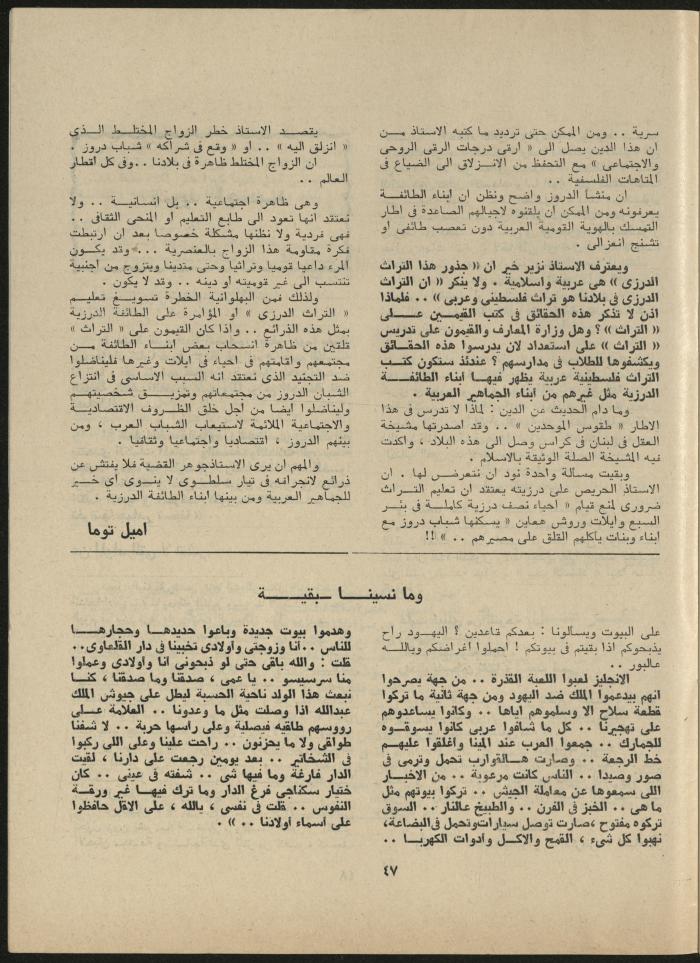 سرية .. ومن الممكن حتى ترديد ما كتبه الاستاذ مــن
ان هذا الدين يصل الى « ارقى درجات الرقى الروحى
والاجتماعى » مع التحفظ من الانــزلاق الى الضياع فى
المتاهات الفلسفية ..
ان منشأ الدروز واضح ونظن ان ابناء الطائفــة
يعرفونه ومن الممكن ان يلقنوه لاجيالهم الصاعدة فى اطار
التمسك بالهوية القومية العربية دون تعصب طائفى او
تشنج انعزالى .
ويعترف الاستاذ نزير خير ان « جذور هذا التراث
الدرزى » هى عربية واسلامية . ولا ينكر « ان التراث
الدرزى فى بلادنا هو تراث فلسطينى وعربى » .. فلماذا
اذن لا تذكر هذه الحقائق فى كتب القيمــين عــلى
« التراث » ؟ وهل وزارة المعارف والقيمون على تدريس
« التراث » على استعداد لان يدرسوا هذه الحقــائق
ويكشفوها للطلاب فى مدارسهم ؟ عندئذ ستكون كتــب
التراث فلسطينية عربية يظهر فيهــا أبناء الطائفــــة
الدرزية مثل غيرهم من أبناء الجماهير العربية .
وما دام الحديث عن الدين : لماذا لا تدرس فى هذا
الاطار « طقوس الموحدين » .. وقد اصدرتها مشيخة
العقل فى لبنان فى كراس وصل الى هذه البلاد ، واكدت
فيه المشيخة الصلة الوثيقة بالاسلام .
وبقيت مسالة واحدة نود ان نتعرض لها . ان
الاستاذ الحريص على درزيته يعتقد ان تعليم التــراث
ضرورى لمنع قيام « احياء نصف درزية كاملــة فى بئــر
السبع وايلات وروش هعاين « يسكنها شباب دروز مع
ابناء وبنات يأكلهم القلق على مصيرهم .. » !!
يقصــد الاستاذ خطر الزواج المختلــط الــذى
« انزلق اليه » .. او « وقع فى شراكه » شباب دروز .
ان الزواج المختلط ظاهرة فى بلادنا .. وفى كل اقطار
العالم ..
وهى ظاهرة اجتماعية .. بل انسانيــة .. ولا
نعتقد انها تعود الى طابع التعليم او المنحى الثقافى ..
فهى فردية ولا نظنها مشكلة خصوصا بعد ان ارتبطت
فكرة مقاومة هذا الزواج بالعنصرية ... وقد يكــون
المرء داعيا قوميا وتراثيا وحتى متدينا ويتزوج من أجنبية
تنتسب الى غير قوميته او دينه .. وقد لا يكون .
ولذلك فمن البهلوانية الخطرة تسويــغ تعليــم
« التراث الدرزى » او المؤامرة على الطائفة الدرزية
بمثل هذه الذرائع .. واذا كان القيمون على « التراث »
قلقين من ظاهرة انسحاب بعض ابنــاء الطائفة مــن
مجتمعهم واقامتهم فى احياء فى ايلات وغيرها فليناضلوا
ضد التجنيد الذى نعتقد انه السبب الاساسى فى انتزاع
الشبان الدروز من مجتمعاتهم وتمزيــق شخصيتهــم
وليناضلوا ايضا من اجل خلق الظــروف الاقتصاديــة
والاجتماعية الملائمة لاستيعاب الشباب العرب ، ومن
بينهم الدروز ، اقتصاديا واجتماعيا وثقافيا .
والمهم ان يرى الاستاذ جوهر القضية فلا يفتش عن
ذرائع لانجرافه فى تيار سلطــوى لا ينــوى أى خــير
للجماهير العربية ومن بينها ابناء الطائفة الدرزية .
اميل توما
وما نسينــا ــ بقيــــة
على البيوت ويسالونا : بعدكم قاعدين ؟ اليهــود راح
يذبحوكم اذا بقيتم فى بيوتكم ! احملوا اغراضكم ويالله
عالبور ..
الانجليز لعبوا اللعبة القذرة .. من جهة يصرحوا
انهم بيدعموا الملك ضد اليهود ومن جهة ثانية ما تركوا
قطعة سلاح الا وسلموهم اياها .. وكانوا يساعدوهم
على تهجيرنا .. كل ما شافوا عربى كانوا يسوقــوه
للجمارك .. جمعوا العرب عند المينا واغلقوا عليهــم
خط الرجعة .. وصارت هــالقوارب تحمل وترمى فى
صور وصيدا .. الناس كانت مرعوبة .. من الاخبــار
اللى سمعوها عن معاملة الجيش .. تركوا بيوتهم مثل
ما هى .. الخبز فى الفرن .. والطبيخ عالنار .. السوق
تركوه مفتوح ، صارت توصل سيارات وتحمل فى البضاعة ،
نهبوا كل شىء ، القمح والاكــل وأدوات الكهربــا ..
وهدموا بيوت جديدة وباعوا حديدهــا وحجارهــا
للناس .. انا وزوجتى وأولادى تخبينا فى دار القلعاوى ..
قلت : والله باقى حتى لو ذبحونى انا وأولادى وعملوا
منا سرسيسو .. يا عمى ، صدقنا وما صدقنا ، كنــا
نبعث هذا الولد ناحية الحسبة ليطل على جيوش الملك
عبدالله اذا وصلت مثل ما وعدونا .. العلامة عــلى
رووسهم طاقيه فيصلية وعلى راسها حربة .. لا شفنا
طواقى ولا ما يحزنون .. راحت علينا وعلى اللى ركبوا
فى الشخاتير .. بعد يومين رجعت على دارنا ، لقيت
الدار فارغة وما فيها شى .. شفته فى عينى .. كان
ختيار سكناجى فرغ الدار وما ترك فيهــا غير ورقــة
النفوس .. قلت فى نفسى ، يالله ، على الاقل حافظوا
على أسماء أولادنا .. » .
٤٧